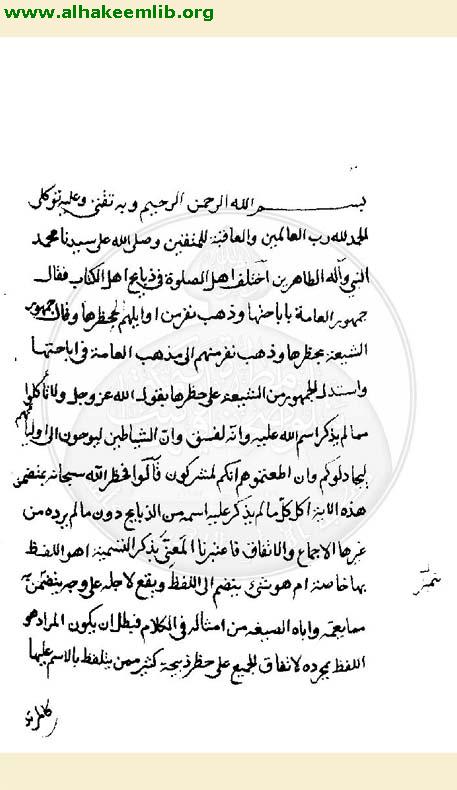 www.alhakeemlib.org
بسم الله الرحمن الرحيم وبه ثقتي وعليه توكلي
الحمد لله رب العالمين والعاقبة للمتقين وصلى الله على سيدنا محمد
النبي وآله الطاهرين اختلف اهل الصلوة في ذبايح اهل الكتاب فقال
جمهور العامة باباحتها وذهب نفر من اوايلهم لحظرها وقال جمهور
الشيعة بحظرها وذهب نفر منهم الى مذهب العامة في اباحتها
واستدل الجمهور من الشيعة على حظرها بقول الله عز وجل ولا تأكلوا
مما لم يذكر اسم الله عليه وانه لفسق وان الشياطين ليوحون الى اوليائهم
ليجادلوكم وان اطعتموهم انكم لمشركون قالوا فحظر الله سبحانه بتضمن
هذه الاية اكل كل ما لم يذكر عليه اسمه من الذبايح دون ما لم يرده من
غيرها الاجماع والاتفاق فاعتبرنا المعنى بذكر التسمية اهو اللفظ
بها خاصة ام هو شئ ينضم الى اللفظ ويقع لاجله على وجه يتضمن به
مما يعمه واياه الصيغة من امثاله في الكلام فبطل ان يكون المراد هو
اللفظ بمجرده لاتفاق الجميع على حظر ذبيحة كثير ممن يتلفظ بالاسم عليها